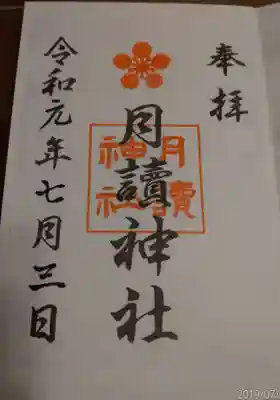 奉拝
月讀神社
月讀
神社
令和元年七月三日